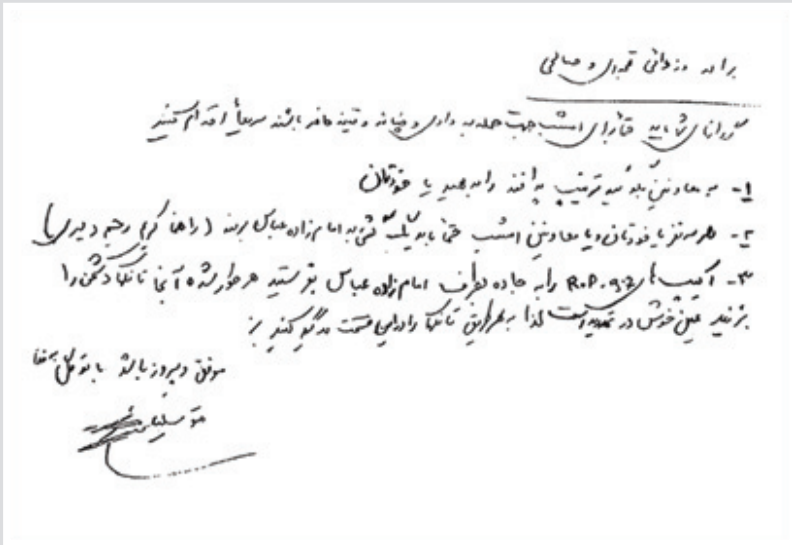 برادر وزوائی قجه‌ای و صالحی
گردانهای شما باید حتماً برای امشب جهت حمله به وادی و میانه و تپه حاضر باشند سریعاً اقدام کنید
۱- به معاونین بگوئید ترتیب پدافند را بدهید یا خودتان
۲- هر سه نفر یا خودتان و یا معاونین امشب حتماً باید یک گشتی به امام زاده عباس بزنند (راهنما کریمی رحیم دبیری)
۳- اکیپ های R.P.G.7 را به جاده بطرف امام زاده عباس بفرستید هر طور شده آنجا تانکهای دشمن را
بزنید عین خوش در تهدید است لذا به هر طریق تانکها را در این قسمت درگیر کنید
موفق و پیروز باشید با توکل به خدا
متوسلیان